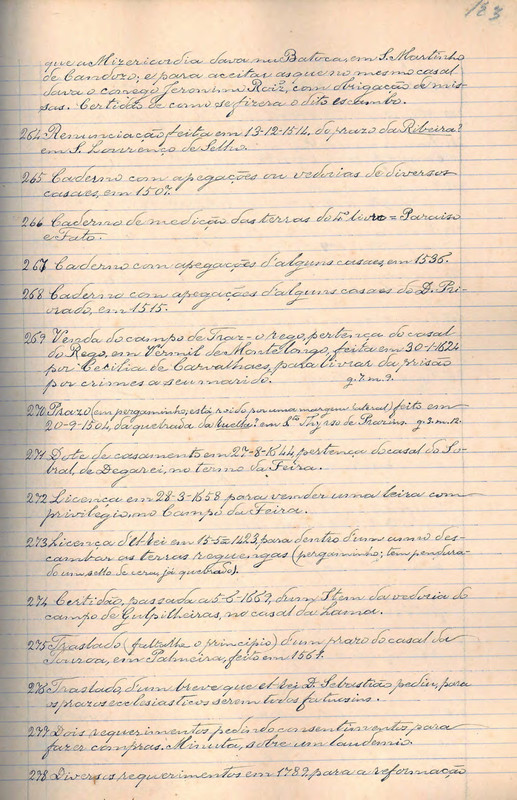 183
que a Mizericordia dava na Batoca, em S. Martinho
de Candozo; e para aceitar as que no mesmo casal
dava o conego Jeronimo Roiz, com obrigação de mis-
sas. Certidão de como se fizera o dito escambo.
264 Renunciação, feita em 13-12-1514, do prazo da Ribeira?
em S. Lourenço de Selho.
265 Caderno com apegações ou vedorias de diversos
casaes, em 1507.
266 Caderno de medição das terras do 4º livro = Paraiso
e Fato.
267 Caderno com apegações d'alguns casaes, em 1536.
268 Caderno com apegações d'alguns casaes do D. Pri-
orado, em 1515.
269 Venda do campo de Traz-o rego, pertença do casal
do Rego, em Vermil de Monte Longo, feita em 30-1-1624
por Cecilia de Carvalhaes, para livrar da prisão
por crimes a seu marido. g. 7. m. 9.
270 Prazo (em pergaminho, está roido por uma margem lateral) feito em
20-9-1504, da quebrada da ? em S.to Thyrso de Prazins. g. 3. m. 12.
271 Dote de casamento em 27-8-1644, pertença do casal do So-
bral, de Degarei, no termo da Feira.
272 Licença em 28-3-1658 para vender uma leira com
privilégio, no Campo da Feira.
273 Licença d'El-Rei em 15-5=1423, para dentro d'um anno des-
cambar as terras reguengas (pergaminho; tem pendura-
do um sello de cera, já quebrado).
274 Certidão, passada a 5-6-1669, d'um Item da vedoria do
campo de Gulpilheiras, no casal da Lama.
275 Traslado (falta-lhe o principio) d'um prazo do casal da
em Palmeira, feito em 1561.
276 Traslado, d'um breve que el-rei D. Sebastião pediu, para
os prazos ecclesiasticos serem todos fatiosins.
277 Dois requerimentos pedindo consentimentos para
fazer compras. Minuta, sobre um laudemio.
278 Diversos requerimentos em 1782, para a reformação